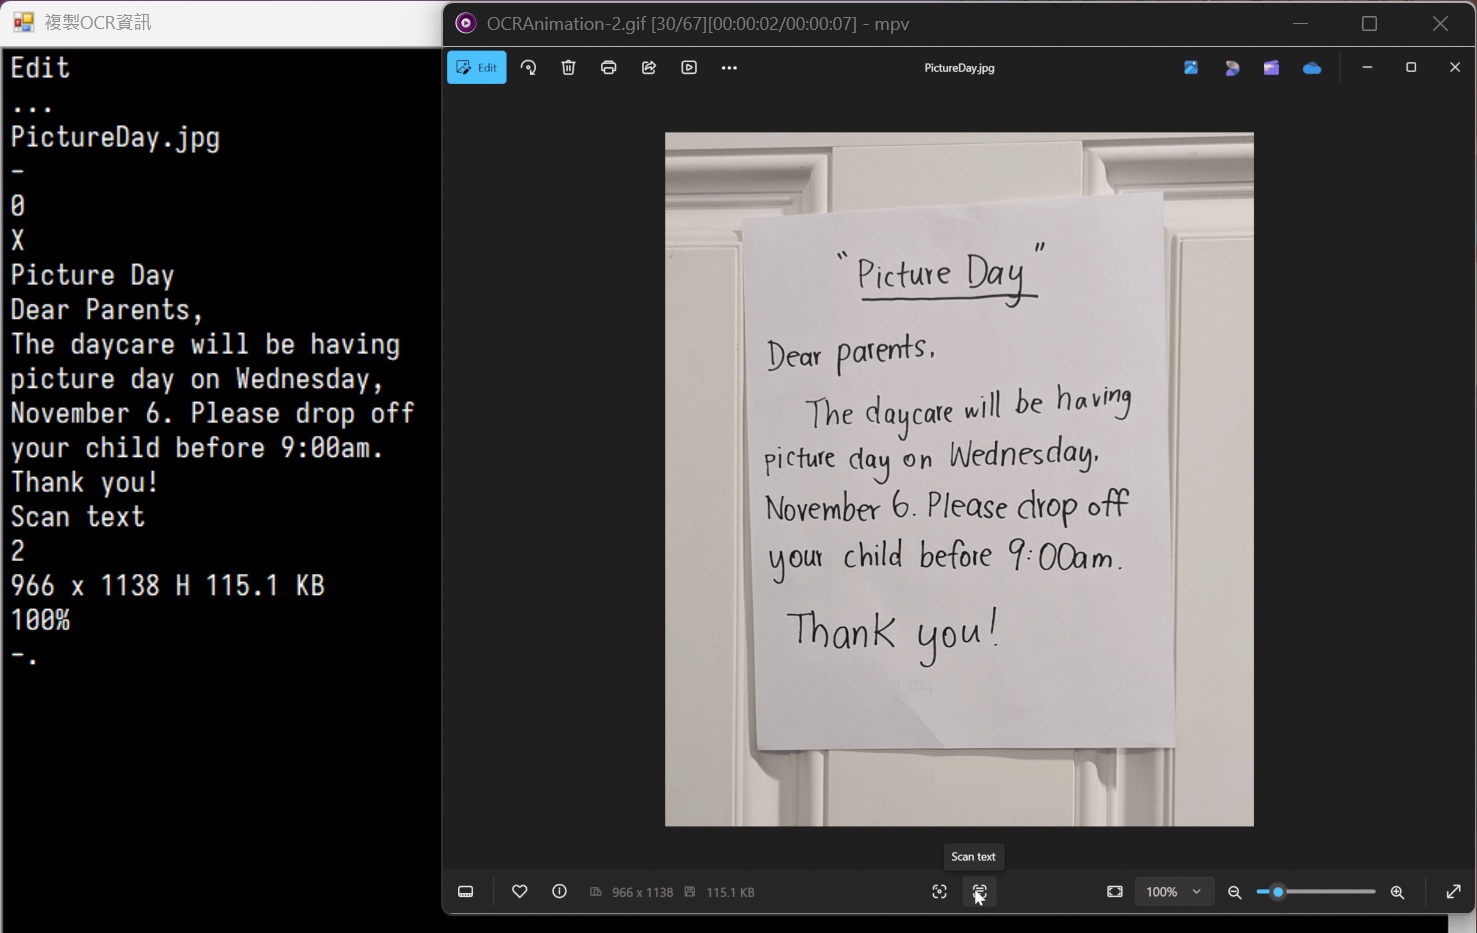 複製OCR資訊
Edit
...
PictureDay.jpg
-
0
X
Picture Day
Dear Parents,
The daycare will be having
picture day on Wednesday,
November 6. Please drop off
your child before 9:00am.
Thank you!
Scan text
2
966 x 1138 H 115.1 KB
100%
-.
OCRAnimation-2.gif [30/67][00:00:02/00:00:07] - mpv
Edit
PictureDay.jpg
"Picture Day"
Dear parents,
The daycare will be having
picture day on Wednesday,
November 6. Please drop off
your child before 9:00am.
Thank you!
Scan text
966 x 1138 115.1 KB
100%